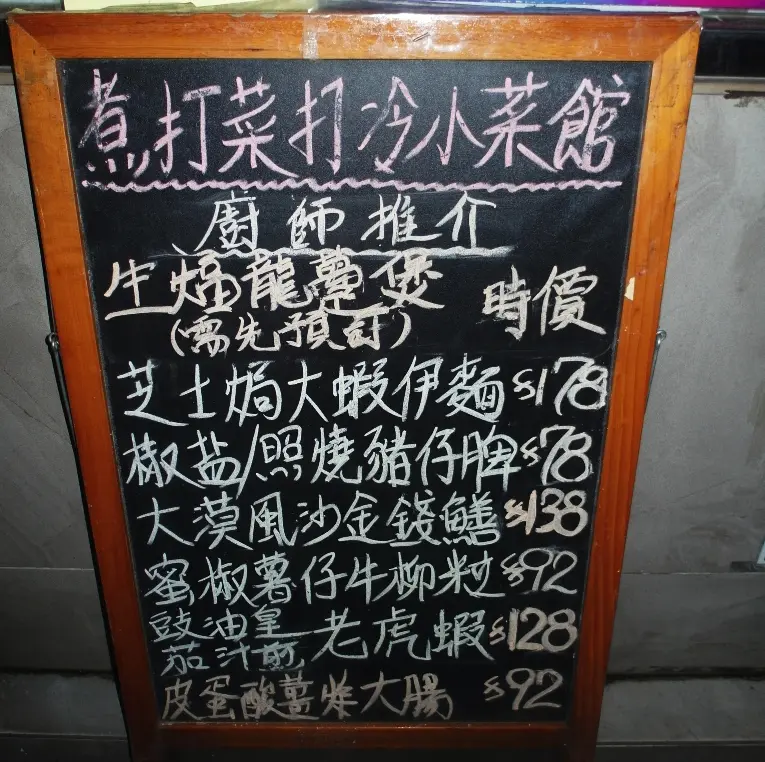 煮打菜打冷小菜館
廚師推介
生焗龍躉煲 時價
(需先預訂)
芝士焗大蝦伊麵 $178
椒盐/照燒豬仔脾 $78
大漠風沙金錢鱔 $138
蜜椒薯仔牛柳粒 $92
豉油皇
茄汁煎 老虎蝦 $128
皮蛋酸薑炸大腸 $92